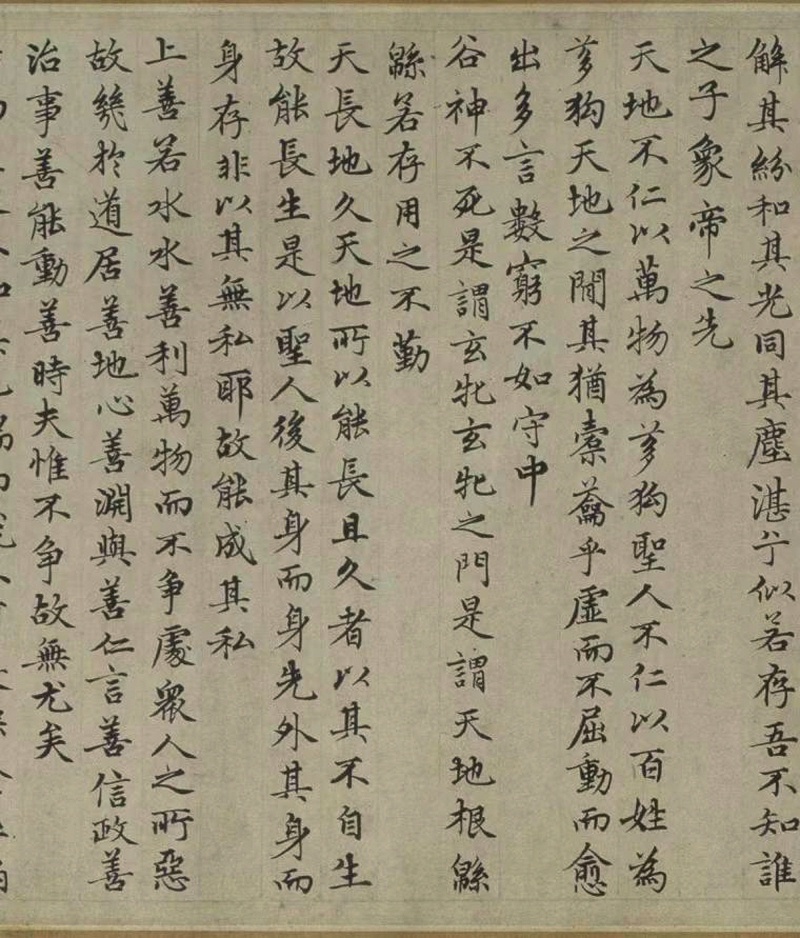 解其紛和其光同其塵湛兮似若存吾不知誰
之子象帝之先
天地不仁以萬物為芻狗聖人不仁以百姓為
芻狗天地之閒其猶橐籥乎虛而不屈動而愈
出多言數窮不如守中
谷神不死是謂玄牝玄牝之門是謂天地根緜
緜若存用之不勤
天長地久天地所以能長且久者以其不自生
故能長生是以聖人後其身而身先外其身而
身存非以其無私耶故能成其私
上善若水水善利萬物而不争處眾人之所惡
故幾於道居善地心善淵與善仁言善信政善
治事善能動善時夫惟不争故無尤矣